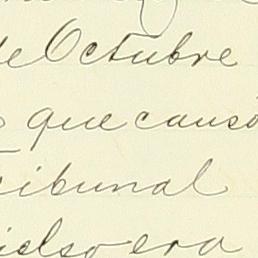 de Octubre
que causó
ribunal
era